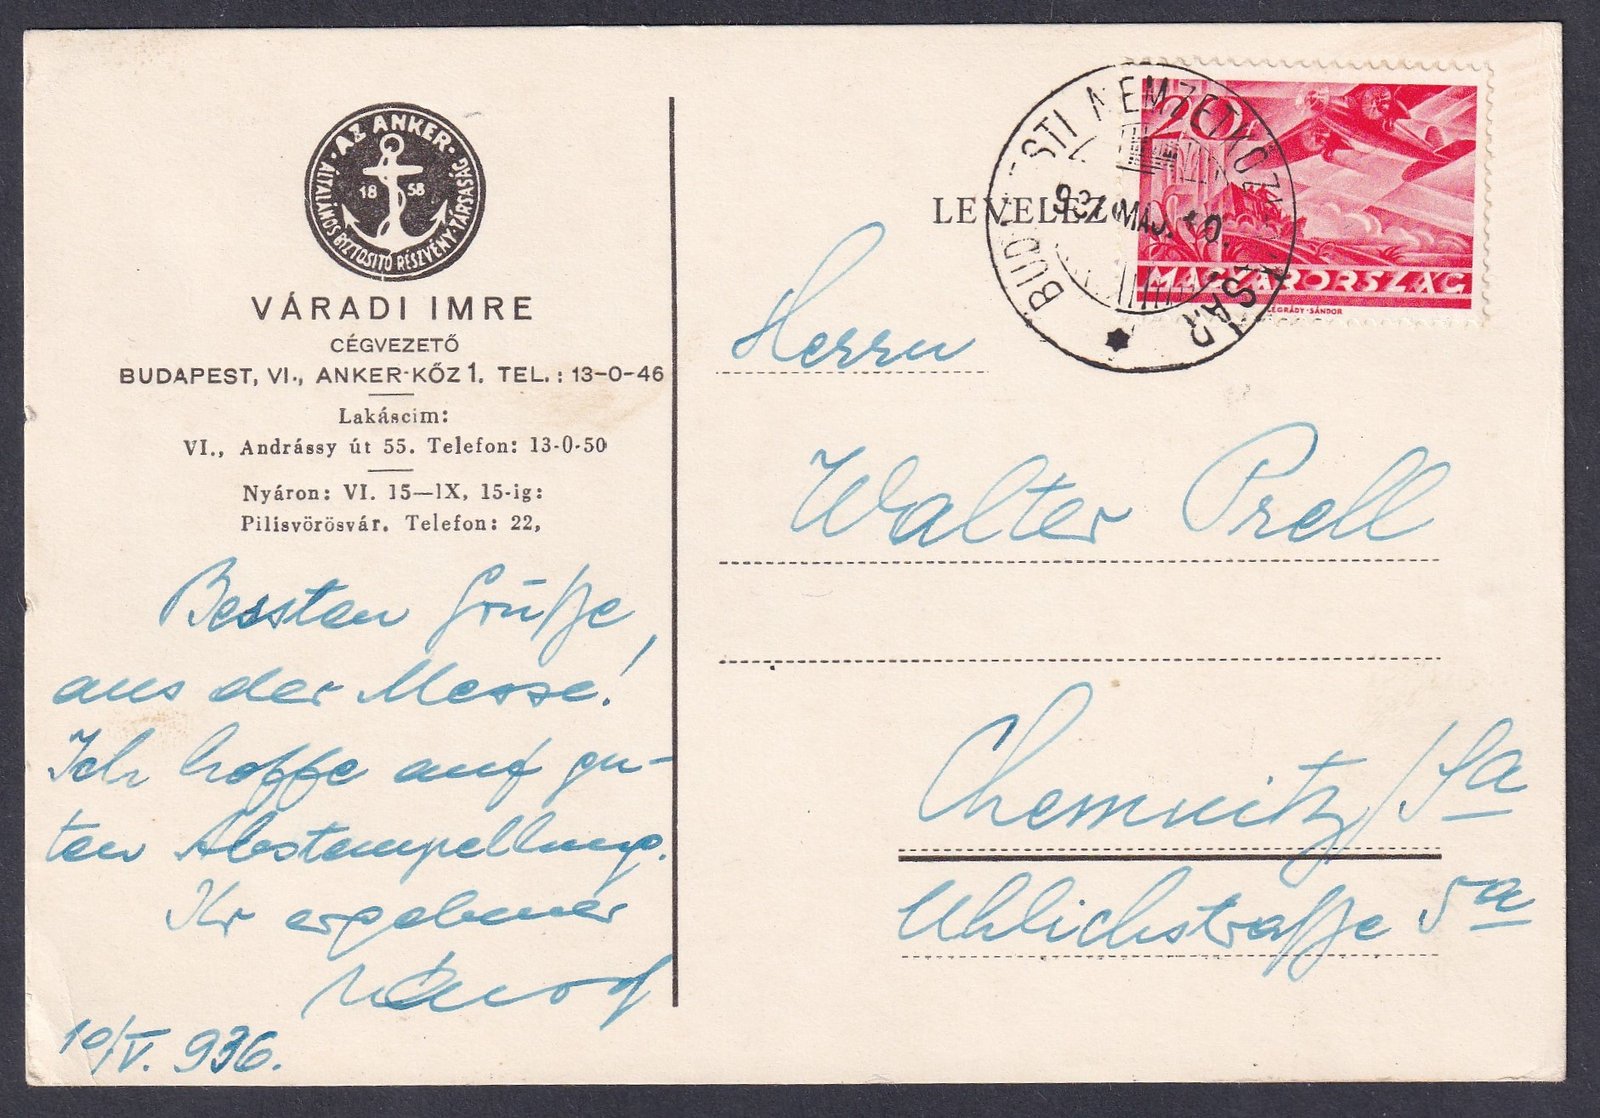 · AZ ANKER ·
ÁLTALÁNOS BIZTOSITÓ RÉSZVÉNY-TÁRSASÁG
18 58
VÁRADI IMRE
CÉGVEZETŐ
BUDAPEST, VI., ANKER-KÖZ 1. TEL.: 13-0-46
Lakáscim:
VI., Andrássy út 55. Telefon: 13-0-50
Nyáron: VI. 15—IX, 15-ig:
Pilisvörösvár. Telefon: 22,
Bessten Grüße,
aus der Messe!
Ich hoffe auf gu-
ten Abstempellung.
Ihr ergebener
10/V. 936.
BUDAPESTI NEMZETKÖZI VÁSÁR
936 MÁJ. 10.
20
MAGYARORSZÁG
LÉGRÁDY·SÁNDOR
LEVELEZ
Herrn
Walter Prell
Chemnitz/Sa
Uhlichstraße 5a